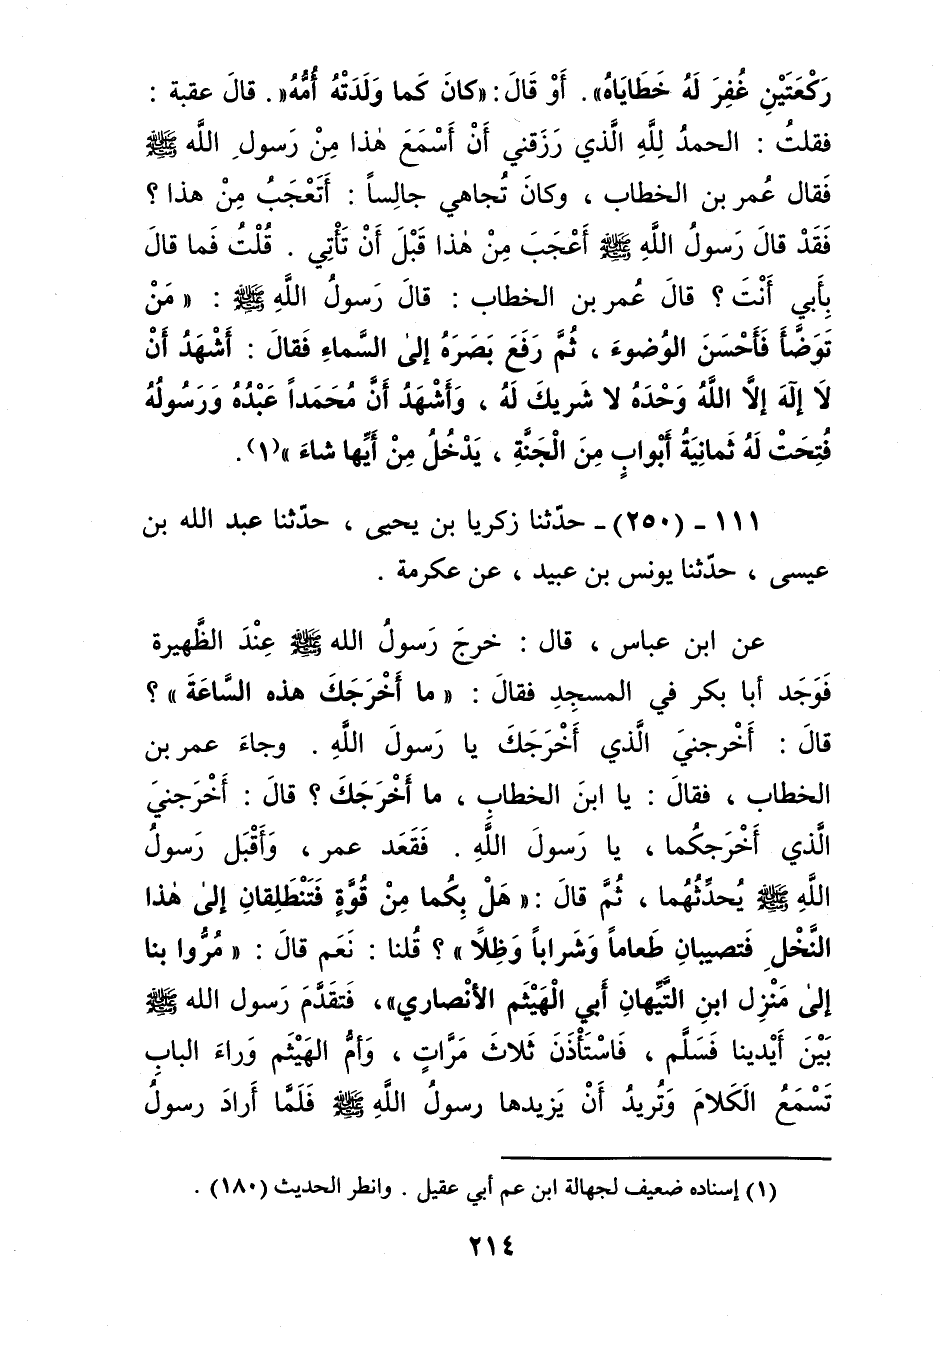 رَكْعَتَيْنِ غُفِرَ لَهُ خَطَايَاهُ». أَوْ قَالَ: «كانَ كَما وَلَدَتْهُ أُمُّهُ«. قالَ عقبة :
فقلتُ : الحمدُ لِلَّهِ الَّذي رَزَقني أَنْ أَسْمَعَ هٰذا مِنْ رَسولِ اللَّه ﷺ
فَقال عُمر بن الخطاب ، وكانَ تُجاهي جالِساً : أَتَعْجَبُ مِنْ هذا ؟
فَقَدْ قالَ رَسولُ اللَّهِ ﷺ أَعْجَبَ مِنْ هٰذا قَبْلَ أَنْ تَأْتِي . قُلْتُ فَما قالَ
بِأَبي أَنْتَ ؟ قالَ عُمر بن الخطاب : قالَ رَسولُ اللَّهِ ﷺ : « مَنْ
تَوَضَّأَ فَأَحْسَنَ الوُضوءَ ، ثُمَّ رَفَعَ بَصَرَهُ إلىٰ السَّماءِ فَقالَ : أَشْهَدُ أَنْ
لَا إلٓهَ إلَّا اللَّهُ وَحْدَهُ لا شَريكَ لَهُ ، وَأَشْهَدُ أَنَّ مُحَمَداً عَبْدُهُ وَرَسُولُهُ
فُتِحَتْ لَهُ ثَمانِيَةُ أَبْوابٍ مِنَ الْجَنَّةِ ، يَدْخُلُ مِنْ أَيِّها شاءَ »(١).
١١١ - (٢٥٠) - حدّثنا زكريا بن يحيى ، حدّثنا عبد الله بن
عيسى ، حدّثنا يونس بن عبيد ، عن عكرمة .
عن ابن عباس ، قال : خرجَ رَسولُ الله ﷺ عِنْدَ الظَّهيرة
فَوَجَد أبا بكر في المسجِدِ فقالَ : « ما أَخْرَجَكَ هذه السَّاعَةَ » ؟
قالَ : أَخْرجنيَ الَّذي أَخْرَجَكَ يا رَسولَ اللَّهِ . وجاءَ عمر بن
الخطاب ، فقالَ : يا ابنَ الخطابِ ، ما أَخْرَجَكَ ؟ قالَ : أَخْرَجنيَ
الَّذي أَخْرَجكُما ، يا رَسولَ اللَّهِ . فَقَعَد عمر ، وَأَقْبَل رَسولُ
اللَّهِ ﷺ يُحدِّثُهُما ، ثُمَّ قالَ : « هَلْ بِكُما مِنْ قُوَّةٍ فَتَنْطَلِقانِ إلىٰ هٰذا
النَّخْلِ فَتصيبانِ طَعاماً وَشَراباً وَظِلاً » ؟ قُلنا : نَعَم قالَ : « مُرُّوا بنا
إلىٰ مَنْزِل ابنِ التَّيِّهانِ أَبي الْهَيْثَم الأنْصاري» ، فَتقَدَّمَ رَسول الله ﷺ
بَيْنَ أَيْدينا فَسَلَّم ، فَاسْتَأْذَنَ ثَلاثَ مَرَّاتٍ ، وَأمُّ الهَيْثَم وَراءَ البابِ
تَسْمَعُ الَكَلامَ وَتُريدُ أَنْ يَزيدها رسولُ اللَّهِ ﷺ فَلَمَّا أرادَ رسولُ
(١) إسناده ضعيف لجهالة ابن عم أبي عقيل . وانطر الحديث (١٨٠) .
٢١٤